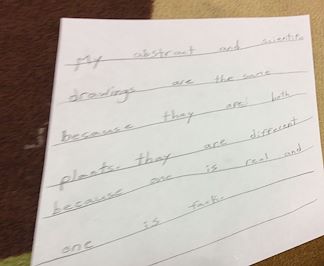 My abstract and scientific
drawings are the same
because they are both
plants. they are different
because one is real and
one is fack.